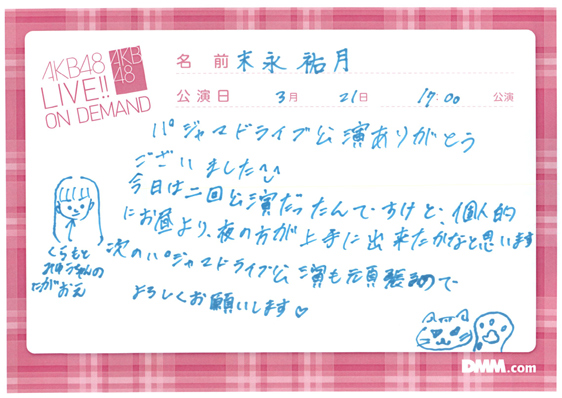 AKB48
LIVE!!
ON DEMAND
AKB
48
名前 末永祐月
公演日 3月 21日 17:00 公演
パジャマドライブ公演ありがとう
ございました
今日は二回公演だったんですけど、個人的
にお昼より、夜の方が上手に出来たかなと思います
次のパジャマドライブ公演も頑張るので
よろしくお願いします♡
くらもと
みゆうちゃんの
にがおえ
DMM.com